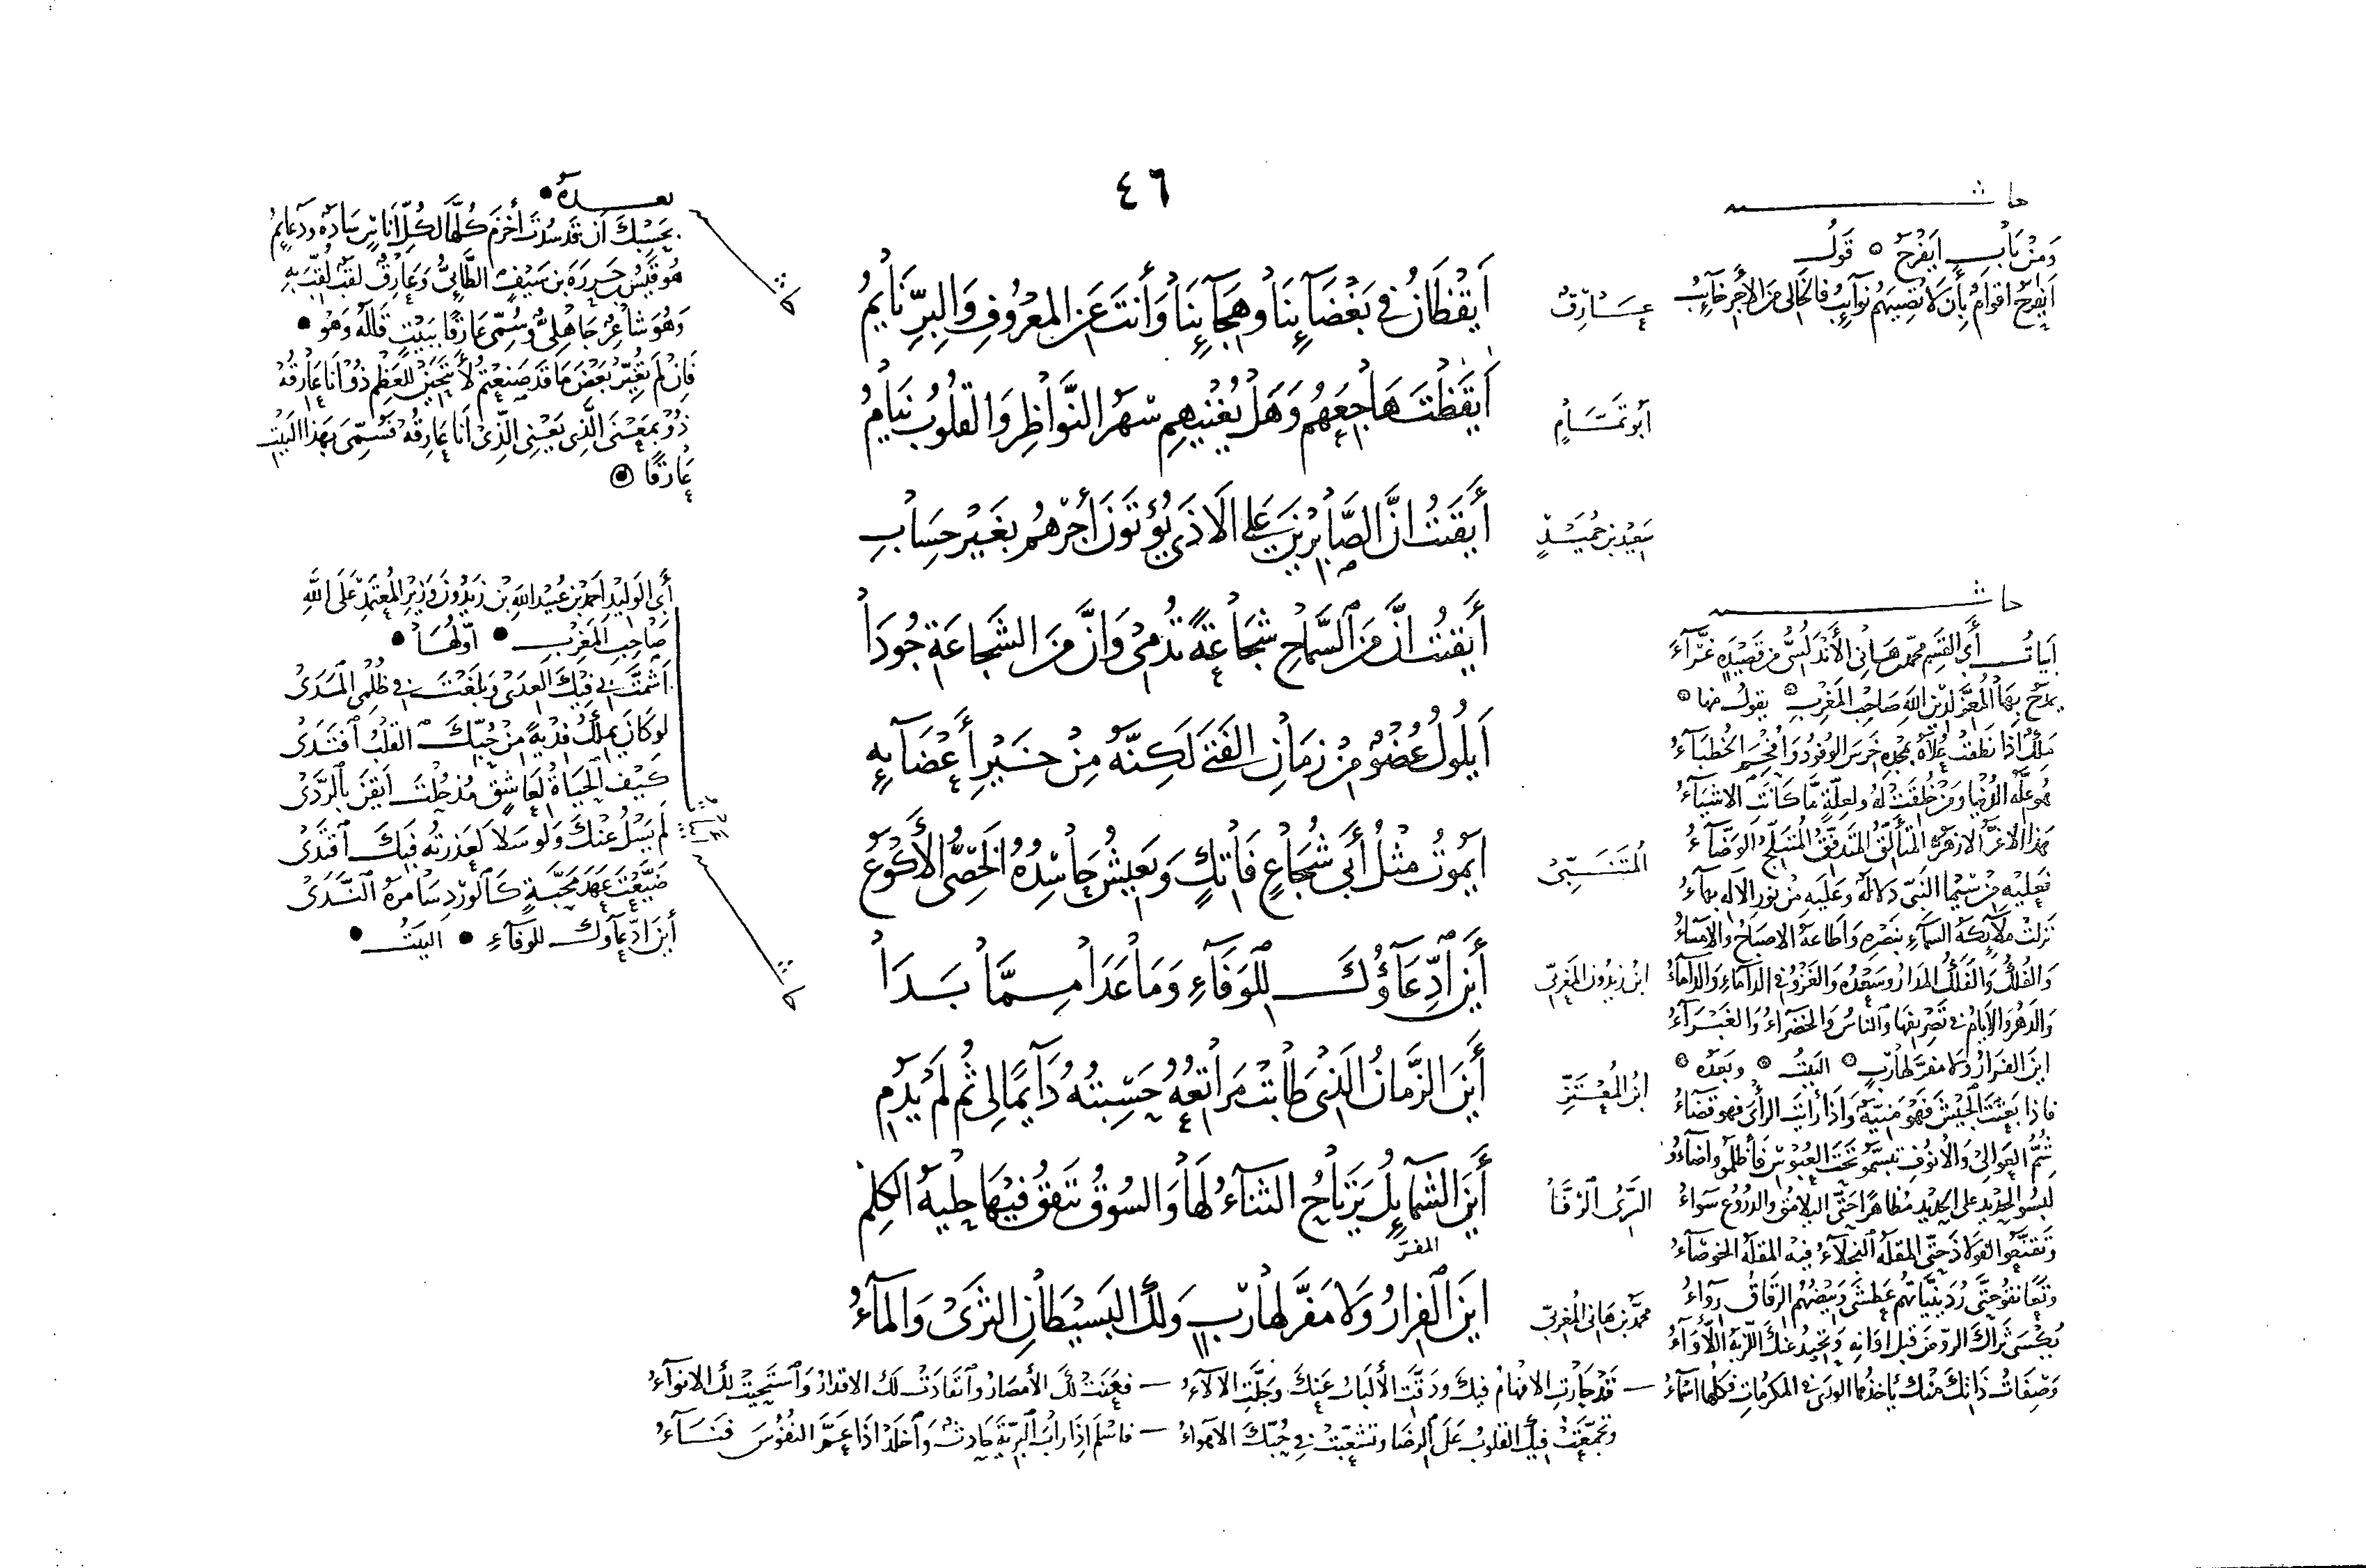 ٤٦
حاشـــــــية
وَمِنْ بَابِ اَيَفْرَحُ ۞ قَولُ
اَيَفْرَحُ اَقْوَامٌ بِأَن لَا تُصِيبَهُم نَوَآئِبُ فَالخَالِى مِنَ الأَجرِ خَآئِبُ
عَــارِقٌ
اَيَقْظَانُ فِى بَغْضَآئِنَا وَهِجَآئِنَا وَأَنتَ عَنِ المَعْرُوفِ وَالبِرِّ نَايِمُ
أَبُو تَمَّــامٍ
أَيْقَظْتَ هَاجِعَهُم وَهَلْ يُغْنِيهِم سَهَرُ النَّوَاظِرِ وَالقُلُوبُ نِيَامُ
سَعِيْدُ بنُ حُمَيْــدٍ
أَيْقَنْتُ انَّ الصَّابِرِيْنَ عَلَى الاَذَى يُؤتَوْنَ أَجْرَهُم بِغَيْرِ حِسَابِ
أَيْقَنْتُ انَّ مِنَ السَّمَاحِ شَجَاعَةً تُدْمِى وَانَّ مِنَ الشَّجَاعَةِ جُودَا
اَيلُولُ عُضْوٌ مِنْ زَمَانِ الفَتَى لَكِنَّهُ مِنْ خَــيْرِ أَعْضَآئِهِ
المُتَنَــبِّى
اَيَمُوتُ مِثْلُ أَبِى شُجَاعٍ فَاتِكٍ وَيَعِيشُ حَاسِدُهُ الخَصِىُّ الأَكْوَعُ
ابنُ زَيْدُونَ المَغرِبِىّ
أَيْنَ ادِّعَآؤُكَ لِلوَفَآءِ وَمَا عَدَا مِــمَّا بَــدَا
ابنُ المُعْتَــزِّ
أَيْنَ الزَّمَانُ الَّذِى طَابَتْ مَرَاتِعُهُ حَسِبْتُهُ دَآئِمًا لِى ثُمَّ لَم يَدُمِ
السَّرِىُّ الرَّفَّا
أَيْنَ الشَّمَايِلُ يَرْتَاحُ الثَّنَآءُ لَهَا وَالسُّوقُ تَنْفُقُ فِيْهَا حِليَةُ الكَلِمِ
المفرّ
محمّدُ بن هَانِى المَغرِبىّ
اَيْنَ الفِرَارُ وَلَا مَفَرَّ لِهَارِبٍ وَلَكَ البَسِيْطَانِ الثَّرَى وَالمَآءُ
حاشـــــــية
اَبيَاتُ أَبِى القَسِمِ محمّد بن هَانِى الأَنْدَلُسِىُّ مِن قَصِيْدَةٍ غَرَّآءَ
يمدَحُ بِهَا المُعِزَّ لِدِيْنِ اللهِ صَاحِبَ المَغرِبِ ۞ يقولُ منها ۞
مَلِكٌ اِذَا نَطَقَتْ عُلَاهُ بِمَجدِهِ خَرِسَ الوُفُودُ وَاُفحِمَ الخُطَبَآءُ
هُوَ عِلَّةُ الدُّنيَا وَمَن خُلِقَتْ لَهُ وَلِعِلَّةٍ مَّا كَانَتِ الاشيَآءُ
هَذَا الاَغَرُّ الازهَرُ المُتَأَلِّقُ المُتَدَفِّقُ المُتَبَلِّجُ الوَضَّآءُ
فَعَلَيْهِ مِن سِيْمَا النَّبِىِّ دَلالَةٌ وَعَلَيهِ مِن نُورِ الاِلَهِ بَهَآءُ
نَزَلَتْ مَلآئِكَةُ السَّمَآءِ بِنَصْرِهِ وَاَطَاعَهُ الاِصبَاحُ والاِمسَآءُ
وَالفُلكُ وَالفَلَكُ المُدَارُ وَسَعْدُهُ وَالغَزْوُ فِى الدَّأمَآءِ وَالدَّأمَآءُ
وَالدَهرُ وَالايَّامُ فِى تَصْرِيفِهَا وَالنَّاسُ وَالخَضْرَآءُ وَالغَبْــرَآءُ
اينَ الفِرَارُ وَلا مَفَرَّ لِهَارِبٍ ۞ البَيتُ ۞ وبَعْدَهُ ۞
فَاذَا بَعَثْتَ الجَيْشَ فَهْوَ مَنِيَّةٌ وَاذَا رَاَيْتَ الرَأىَ فهو قَضَآءُ
شُمُّ العَوَالِى وَالاُنُوفِ تَبَسَّمُوا تَحتَ العُبُوسِ فَأَظلَمُوا واَضَاءُوا
لَبِسُوا الحَدِيدَ عَلَى الحَدِيدِ مُظَاهَرًا حَتَّى اليَلَامِقُ وَالدُرُوعُ سَوَاءُ
وَتَقَنَّعُوا الفُولاذَ حَتَّى المُقلَةُ النَجلآءُ فِيهِ المُقلَةُ الخَوصَآءُ
وَتَعَانَقُوا حَتَّى رُدَيْنِيَّاتُهُم عَطشَى وَبِيضُهُم الرِقَاقُ رِوَآءُ
يُكْسَى ثَرَاكَ الرَّوضَ قَبلَ اَوَانِهِ وَتَحِيدُ عَنكَ اللَّزبَةُ اللَّأوَآءُ
وَصِفَاتُ ذَاتِكَ مِنْكَ يَاخُذُهَا الوَرَى فِى المَكرُمَاتِ فَكُلُّهَا اسمَآءُ — قَدْ جَارَتِ الاَفهَامُ فِيكَ وَدَقَّتِ الأَلبَابُ عَنكَ وَجَلَّتِ الآلآءُ — فَعَنَتْ لَكَ الأَمصَارُ وَانقَادَتْ لَكَ الاقدَارُ وَاستَحيَتْ لَكَ الاَنوَآءُ
وَتَجَمَّعَتْ فِيكَ القُلُوبُ عَلَى الرِضَا وَتَشَعَّبَتْ فِى حُبِّكَ الاَهوَاءُ — فَاسلَم اِذَا رَابَ البَرِيَّةَ حَادِثٌ وَاخلُد اذَا عَمَّ النُفُوسَ فَنَــآءُ
بعــــدهُ •
بِحَسْبِكَ اَن قَد سُدْتَ أَخزَمَ كُلَّهَا لِكُلِّ اُنَاسٍ سَادَةٌ وَدَعَايِمُ
هُوَ قَيْسُ بن جَروَةَ بن سَيْفٍ الطَّائِىُّ وَعَارِقٌ لَقَبٌ لُقِّبَ بِهِ
وَهُوَ شَاعِرٌ جَاهِلِىٌّ وَسُمِّى عَارِقًا بِبَيْتٍ قَالَهُ وَهُوَ •
فَاِن لَم تُغَيِّر بَعْضَ مَا قَد صَنَعْتُم لَأَنتَحِيَنْ لِلعَظمِ ذُو اَنَا عَارِقُهُ
ذُو بِمَعْنَى الَّذِى يَعْنِى الَّذِى اَنَا عَارِقُهُ فَسُمِّىَ بِهَذَا البَيْتِ
عَارِقًا ۞
أَبِى الوَلِيْدِ اَحمَد بن عَبْدِ اللهِ بن زَيْدُونَ وَزِيْرِ المُعْتَمِدِ عَلَى اللهِ
صَاحِبِ المَغرِبِ • اَوَّلُهَــا •
اَشْمَتَّ بِى فِيْكَ العِدَى وَبَلَغْتَ فِى ظُلمِى المَدَى
لَو كَانَ يَملِكُ فِدْيَةً مِنْ حُبِّكَ القَلبُ افتَدَى
كَيْفَ الحَيَاةُ لِعَاشِقٍ مُذ حُلْتَ اَيقَنَ بِالرَّدَى
لَم يَسْلُ عَنْكَ وَلَو سَلَا لَعَذَرتُهُ فِيكَ اقتَدَى
ضَيَّعْتَ عَهْدَ مَحَبَّةٍ كَالوَرْدِ سَامَرَهُ النَّدَى
أَينَ ادِّعَآوكَ للوَفَآءِ • البَيتُ •